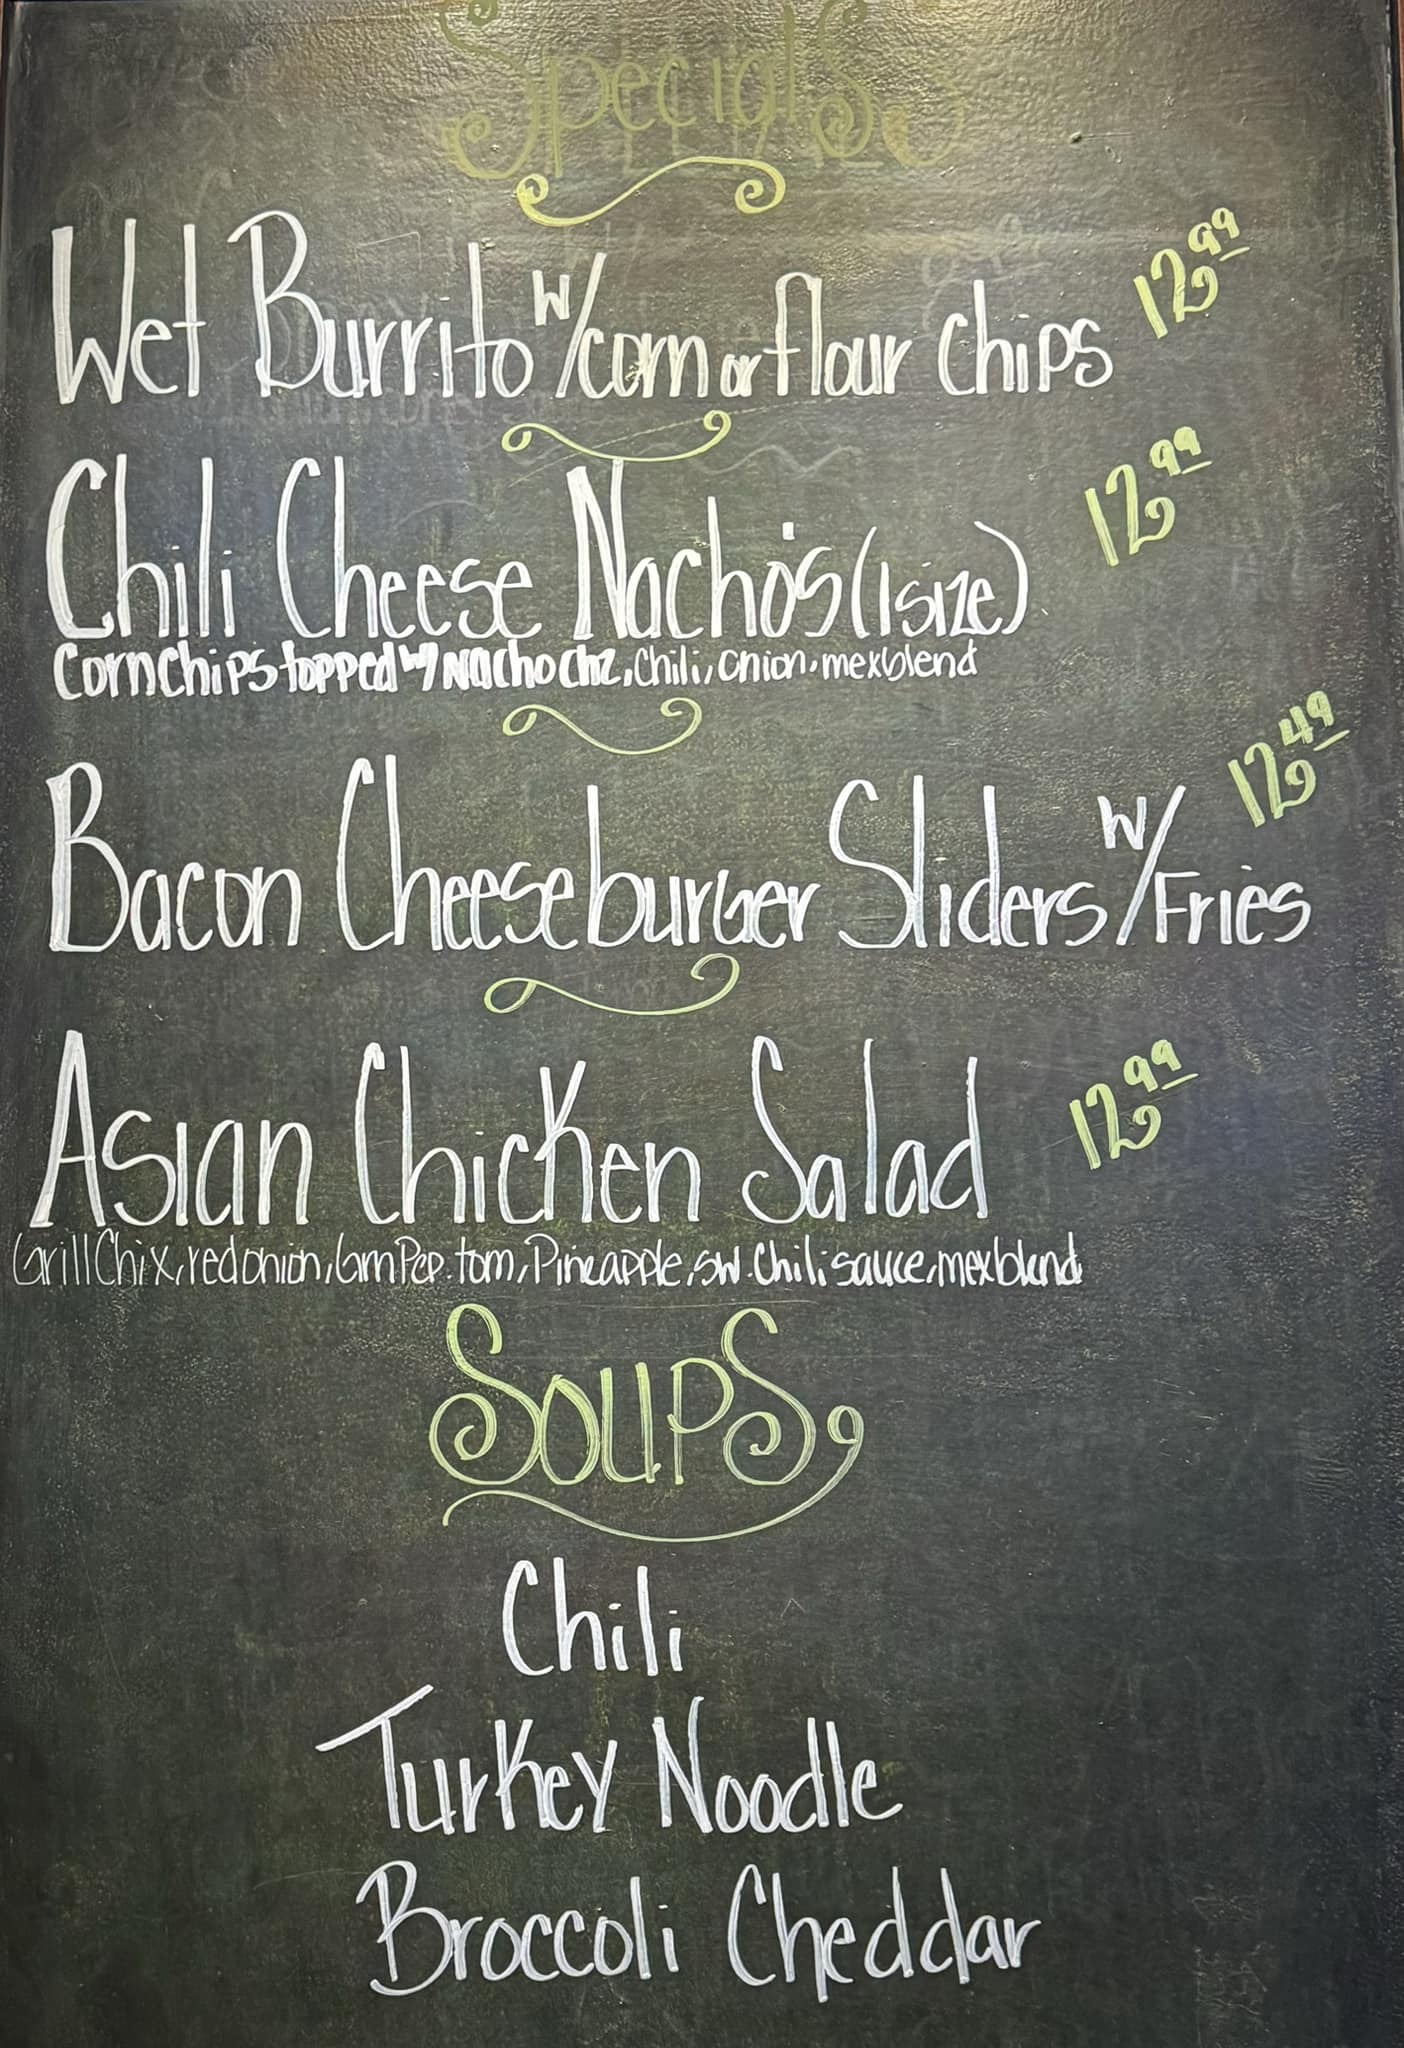 Specials
Wet Burrito w/corn or flour chips 12.99
Chili Cheese Nacho's (1 size) 12.99
Corn Chips topped w/ Nacho chz, Chili, onion, mex blend
Bacon Cheeseburger Sliders w/Fries 12.49
Asian Chicken Salad 12.99
Grill Chix, red onion, Grn Pep, tom, Pineapple, sw. Chili sauce, mex blend
Soups
Chili
Turkey Noodle
Broccoli Cheddar